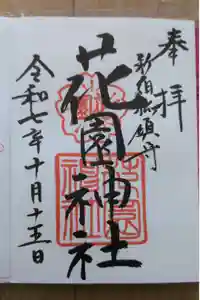 奉拝
新宿総鎮守
花園神社
令和七年十月十五日